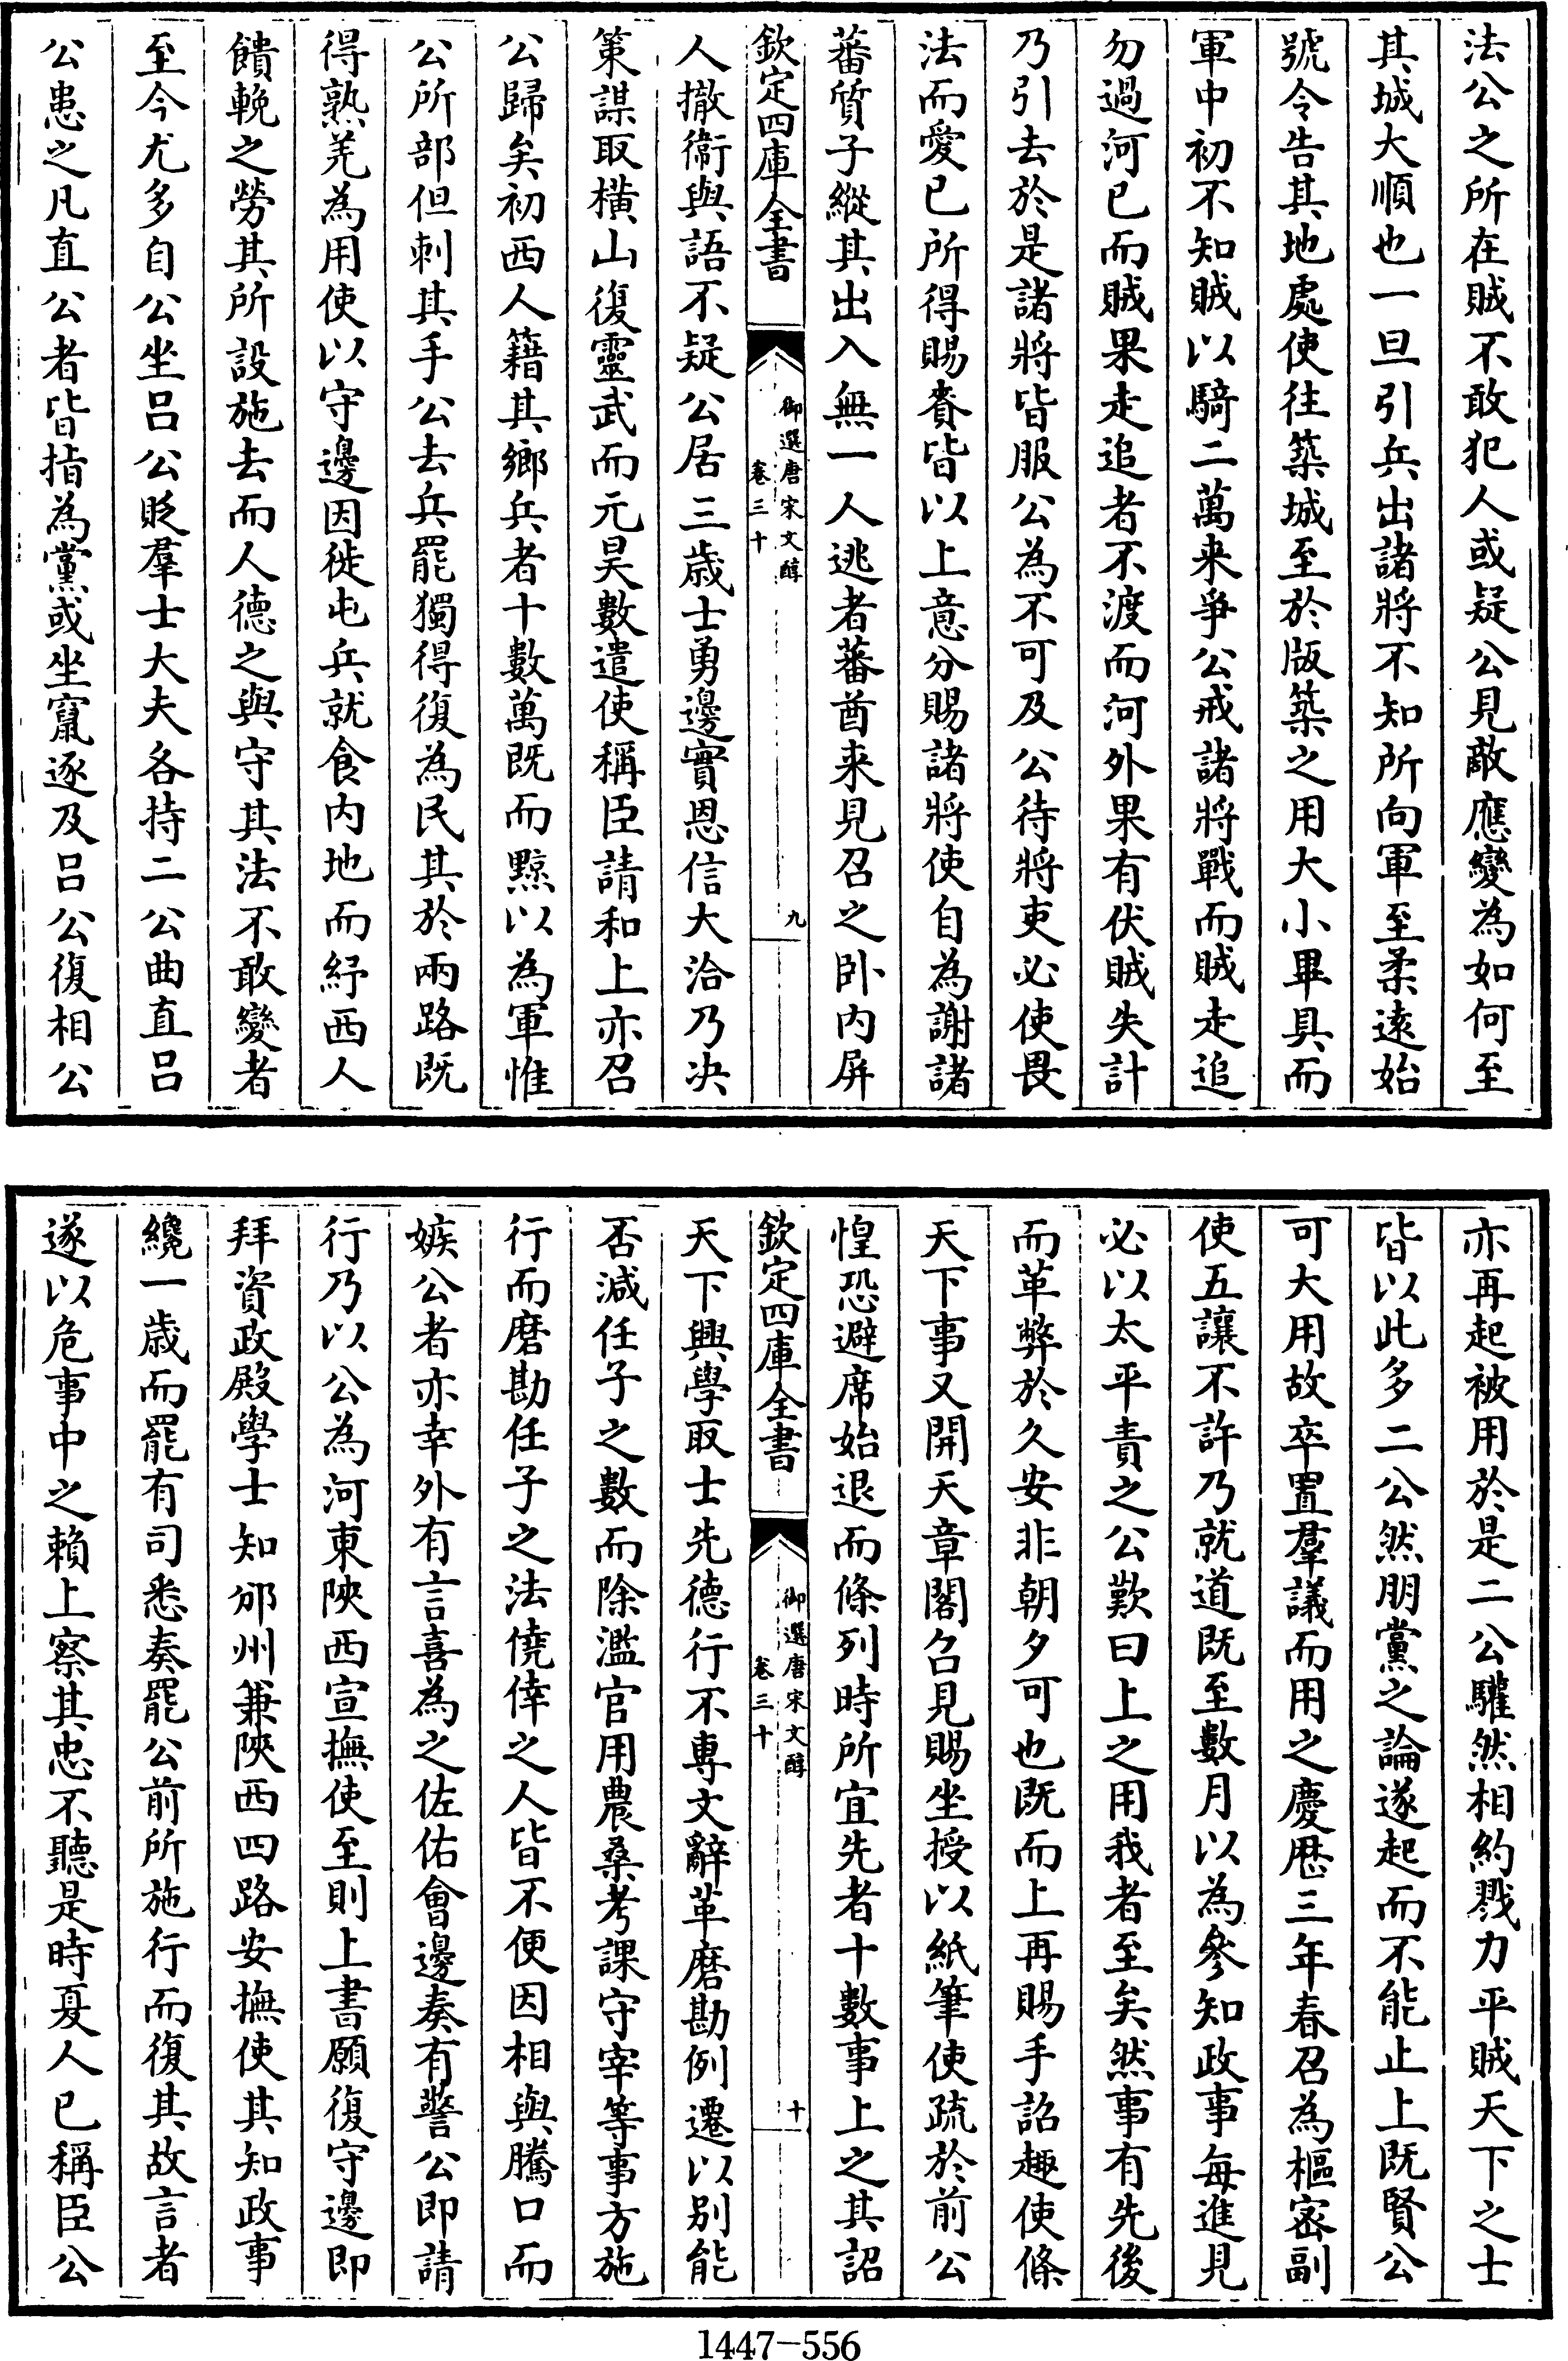 法公之所在賊不敢犯人或疑公見敵應變為如何至
其城大順也一旦引兵出諸將不知所向軍至柔遠始
號令告其地處使往築城至於版築之用大小畢具而
軍中初不知賊以騎二萬来爭公戒諸將戰而賊走追
勿過河已而賊果走追者不渡而河外果有伏賊失計
乃引去於是諸將皆服公為不可及公待將吏必使畏
法而愛已所得賜賚皆以上意分賜諸將使自為謝諸
蕃質子縱其出入無一人逃者蕃酋来見召之卧内屏
欽定四庫全書
御選唐宋文醇
卷三十
九
人撤衛與語不疑公居三歲士勇邊實恩信大洽乃决
策謀取橫山復靈武而元昊數遣使稱臣請和上亦召
公歸矣初西人籍其鄉兵者十數萬既而黥以為軍惟
公所部但刺其手公去兵罷獨得復為民其於兩路既
得熟羌為用使以守邊因徙屯兵就食内地而紓西人
饋輓之勞其所設施去而人德之與守其法不敢變者
至今尤多自公坐吕公貶羣士大夫各持二公曲直吕
公患之凡直公者皆指為黨或坐竄逐及吕公復相公
亦再起被用於是二公驩然相約戮力平賊天下之士
皆以此多二公然朋黨之論遂起而不能止上既賢公
可大用故卒置羣議而用之慶厯三年春召為樞密副
使五讓不許乃就道既至數月以為參知政事每進見
必以太平責之公歎曰上之用我者至矣然事有先後
而革弊於久安非朝夕可也既而上再賜手詔趣使條
天下事又開天章閣召見賜坐授以紙筆使疏於前公
惶恐避席始退而條列時所宜先者十數事上之其詔
欽定四庫全書
御選唐宋文醇
卷三十
十
天下興學取士先德行不專文辭革磨勘例遷以别能
否減任子之數而除濫官用農桑考課守宰等事方施
行而磨勘任子之法僥倖之人皆不便因相與騰口而
嫉公者亦幸外有言喜為之佐佑會邊奏有警公即請
行乃以公為河東陝西宣撫使至則上書願復守邊即
拜資政殿學士知邠州兼陝西四路安撫使其知政事
纔一歲而罷有司悉奏罷公前所施行而復其故言者
遂以危事中之賴上察其忠不聽是時夏人已稱臣公
1447-556